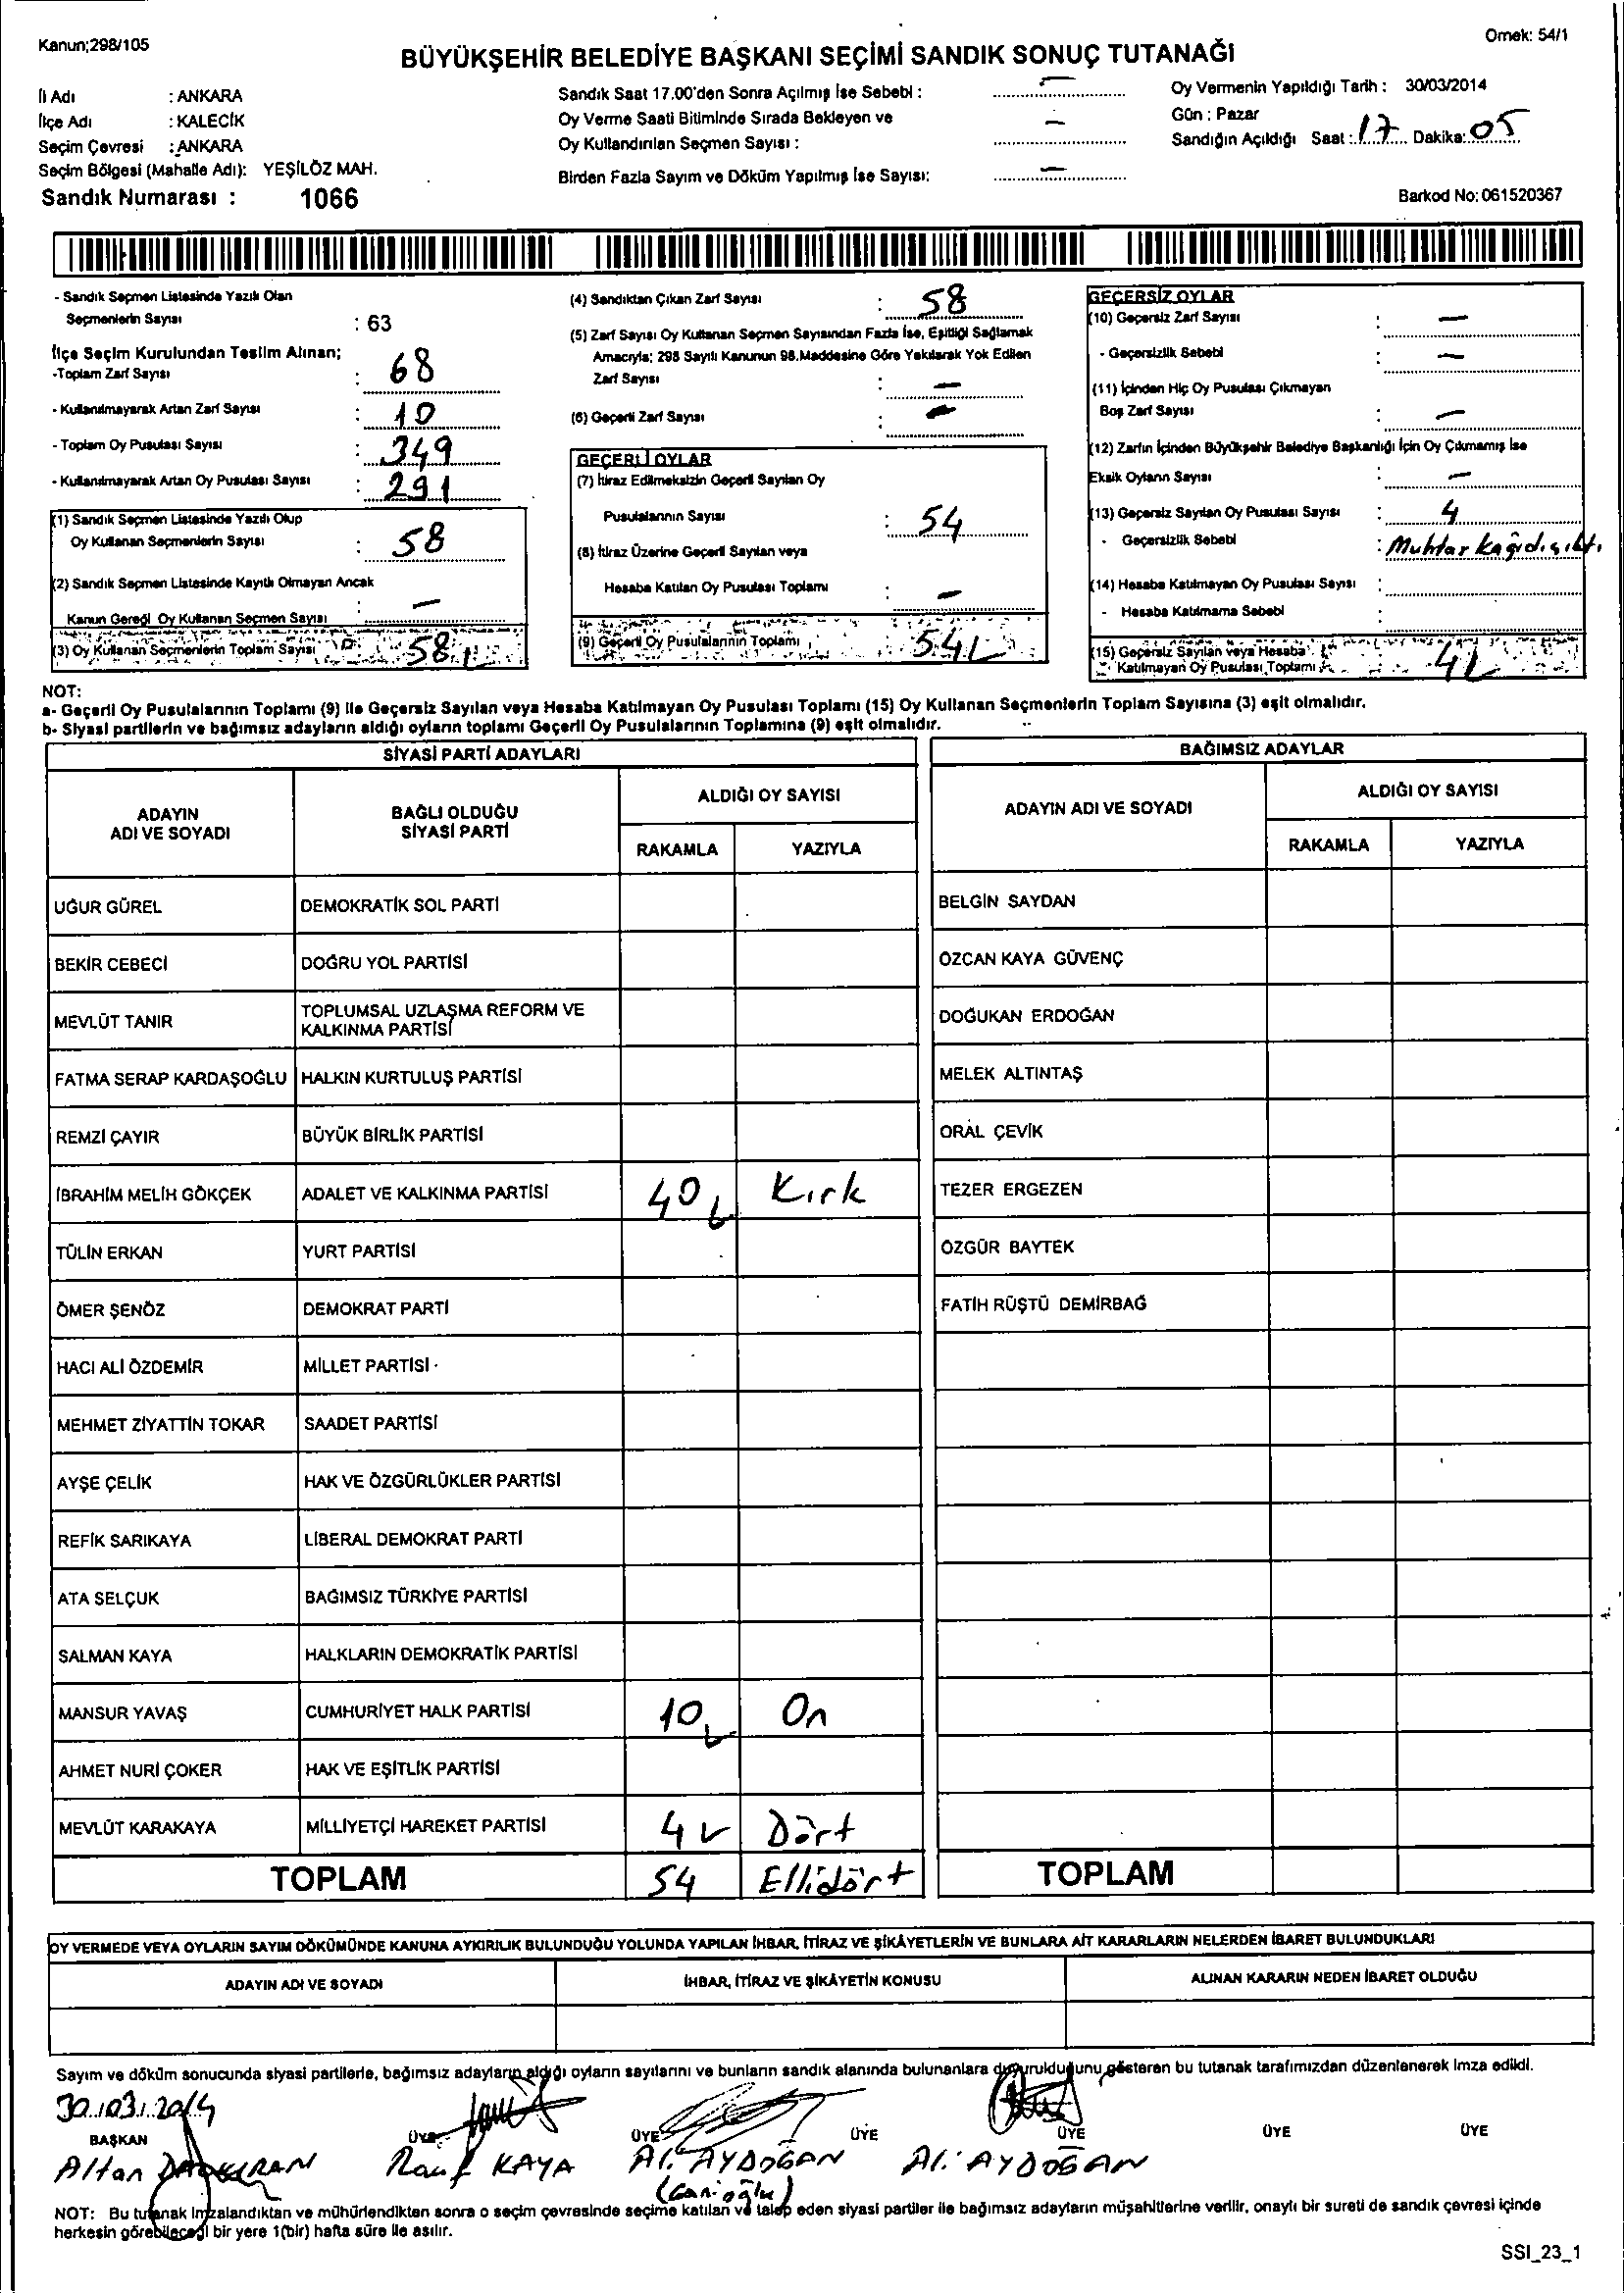 Kanun;298/105
Örnek: 54/1
BÜYÜKŞEHİR BELEDİYE BAŞKANI SEÇİMİ SANDIK SONUÇ TUTANAĞI
İl Adı : ANKARA
İlçe Adı : KALECİK
Seçim Çevresi : ANKARA
Seçim Bölgesi (Mahalle Adı): YEŞİLÖZ MAH.
Sandık Numarası : 1066
Sandık Saat 17.00'den Sonra Açılmış İse Sebebi : —
Oy Verme Saati Bitiminde Sırada Bekleyen ve
Oy Kullandırılan Seçmen Sayısı : —
Birden Fazla Sayım ve Döküm Yapılmış İse Sayısı: —
Oy Vermenin Yapıldığı Tarih : 30/03/2014
Gün : Pazar
Sandığın Açıldığı Saat : 17 Dakika: 05
Barkod No: 061520367
- Sandık Seçmen Listesinde Yazılı Olan
Seçmenlerin Sayısı : 63
İlçe Seçim Kurulundan Teslim Alınan;
-Toplam Zarf Sayısı : 68
- Kullanılmayarak Artan Zarf Sayısı : 10
- Toplam Oy Pusulası Sayısı : 349
- Kullanılmayarak Artan Oy Pusulası Sayısı : 291
(1) Sandık Seçmen Listesinde Yazılı Olup
Oy Kullanan Seçmenlerin Sayısı : 58
(2) Sandık Seçmen Listesinde Kayıtlı Olmayan Ancak
Kanun Gereği Oy Kullanan Seçmen Sayısı : —
(3) Oy Kullanan Seçmenlerin Toplam Sayısı : 58
(4) Sandıktan Çıkan Zarf Sayısı : 58
(5) Zarf Sayısı Oy Kullanan Seçmen Sayısından Fazla İse, Eşitliği Sağlamak
Amacıyla; 298 Sayılı Kanunun 98.Maddesine Göre Yakılarak Yok Edilen
Zarf Sayısı : —
(6) Geçerli Zarf Sayısı : —
GEÇERLİ OYLAR
(7) İtiraz Edilmeksizin Geçerli Sayılan Oy
Pusulalarının Sayısı : 54
(8) İtiraz Üzerine Geçerli Sayılan veya
Hesaba Katılan Oy Pusulası Toplamı : —
(9) Geçerli Oy Pusulalarının Toplamı : 54
GEÇERSİZ OYLAR
(10) Geçersiz Zarf Sayısı : —
- Geçersizlik Sebebi : —
(11) İçinden Hiç Oy Pusulası Çıkmayan
Boş Zarf Sayısı : —
(12) Zarfın İçinden Büyükşehir Belediye Başkanlığı İçin Oy Çıkmamış İse
Eksik Oyların Sayısı : —
(13) Geçersiz Sayılan Oy Pusulası Sayısı : 4
- Geçersizlik Sebebi : Muhtar kağıdı çıktı
(14) Hesaba Katılmayan Oy Pusulası Sayısı :
- Hesaba Katılmama Sebebi :
(15) Geçersiz Sayılan veya Hesaba
Katılmayan Oy Pusulası Toplamı : 4
NOT:
a- Geçerli Oy Pusulalarının Toplamı (9) ile Geçersiz Sayılan veya Hesaba Katılmayan Oy Pusulası Toplamı (15) Oy Kullanan Seçmenlerin Toplam Sayısına (3) eşit olmalıdır.
b- Siyasi partilerin ve bağımsız adayların aldığı oyların toplamı Geçerli Oy Pusulalarının Toplamına (9) eşit olmalıdır.
SİYASİ PARTİ ADAYLARI
ADAYIN
ADI VE SOYADI
BAĞLI OLDUĞU
SİYASİ PARTİ
ALDIĞI OY SAYISI
RAKAMLA YAZIYLA
UĞUR GÜREL DEMOKRATİK SOL PARTİ
BEKİR CEBECİ DOĞRU YOL PARTİSİ
MEVLÜT TANIR TOPLUMSAL UZLAŞMA REFORM VE
KALKINMA PARTİSİ
FATMA SERAP KARDAŞOĞLU HALKIN KURTULUŞ PARTİSİ
REMZİ ÇAYIR BÜYÜK BİRLİK PARTİSİ
İBRAHİM MELİH GÖKÇEK ADALET VE KALKINMA PARTİSİ 40 Kırk
TÜLİN ERKAN YURT PARTİSİ
ÖMER ŞENÖZ DEMOKRAT PARTİ
HACI ALİ ÖZDEMİR MİLLET PARTİSİ
MEHMET ZİYATTİN TOKAR SAADET PARTİSİ
AYŞE ÇELİK HAK VE ÖZGÜRLÜKLER PARTİSİ
REFİK SARIKAYA LİBERAL DEMOKRAT PARTİ
ATA SELÇUK BAĞIMSIZ TÜRKİYE PARTİSİ
SALMAN KAYA HALKLARIN DEMOKRATİK PARTİSİ
MANSUR YAVAŞ CUMHURİYET HALK PARTİSİ 10 On
AHMET NURİ ÇOKER HAK VE EŞİTLİK PARTİSİ
MEVLÜT KARAKAYA MİLLİYETÇİ HAREKET PARTİSİ 4 Dört
TOPLAM 54 Ellidört
BAĞIMSIZ ADAYLAR
ADAYIN ADI VE SOYADI
ALDIĞI OY SAYISI
RAKAMLA YAZIYLA
BELGİN SAYDAN
ÖZCAN KAYA GÜVENÇ
DOĞUKAN ERDOĞAN
MELEK ALTINTAŞ
ORAL ÇEVİK
TEZER ERGEZEN
ÖZGÜR BAYTEK
FATİH RÜŞTÜ DEMİRBAĞ
TOPLAM
OY VERMEDE VEYA OYLARIN SAYIM DÖKÜMÜNDE KANUNA AYKIRILIK BULUNDUĞU YOLUNDA YAPILAN İHBAR, İTİRAZ VE ŞİKÂYETLERİN VE BUNLARA AİT KARARLARIN NELERDEN İBARET BULUNDUKLARI
ADAYIN ADI VE SOYADI İHBAR, İTİRAZ VE ŞİKÂYETİN KONUSU ALINAN KARARIN NEDEN İBARET OLDUĞU
Sayım ve döküm sonucunda siyasi partilerle, bağımsız adayların aldığı oyların sayılarını ve bunların sandık alanında bulunanlara duyurulduğunu gösteren bu tutanak tarafımızdan düzenlenerek imza edildi.
30.03.2014
BAŞKAN ÜYE ÜYE ÜYE ÜYE ÜYE ÜYE
Altan Rauf KAYA Ali AYDOĞAN Ali AYDOĞAN
NOT: Bu tutanak imzalandıktan ve mühürlendikten sonra o seçim çevresinde seçime katılan ve talep eden siyasi partiler ile bağımsız adayların müşahitlerine verilir, onaylı bir sureti de sandık çevresi içinde
herkesin görebileceği bir yere 1(bir) hafta süre ile asılır.
SSI_23_1